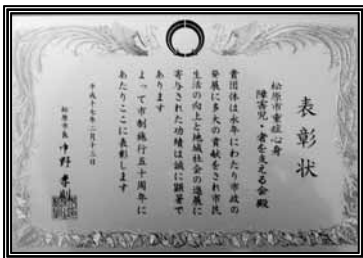 表彰状
松原市重症心身
障害児・者を支える会殿
貴団体は永年にわたり市政の
発展に多大の貢献をされ市民
生活の向上と地域社会の進展に
寄与された功績は誠に顕著で
あります
よって市制施行五十周年に
あたりここに表彰します
平成十七年二月十三日
松原市長 中野孝則